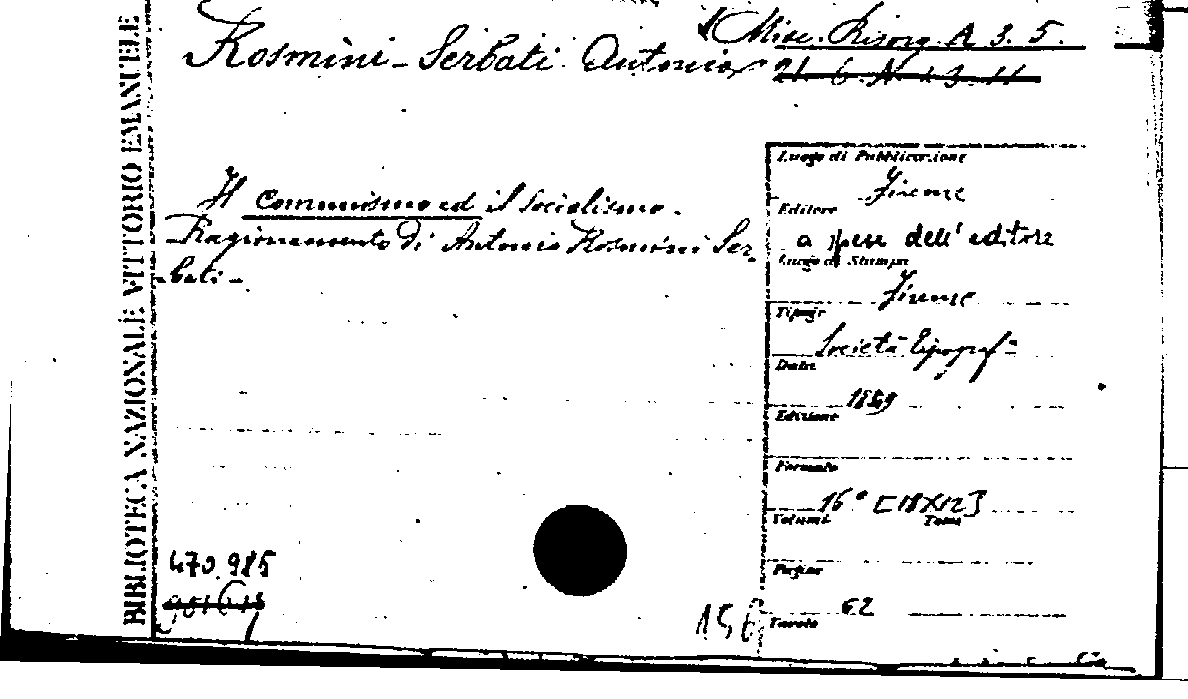 BIBLIOTECA NAZIONALE VITTORIO EMANUELE
Misc. Risorg. A 3. 5.
Rosmini-Serbati Antonio
21. 6. A 43. 11
Il Communismo ed il socialismo.
Ragionamento di Antonio Rosmini Ser-
bati-
Luogo di Pubblicazione
Firenze
Editore
a spese dell' editore
Luogo di Stampa
Firenze
Tipogr
Società Tipograf.ª
Data
1849
Edizione
Formato
16° [18x12]
Volumi Tomi
Pagine
62
Tavole
470.985
156